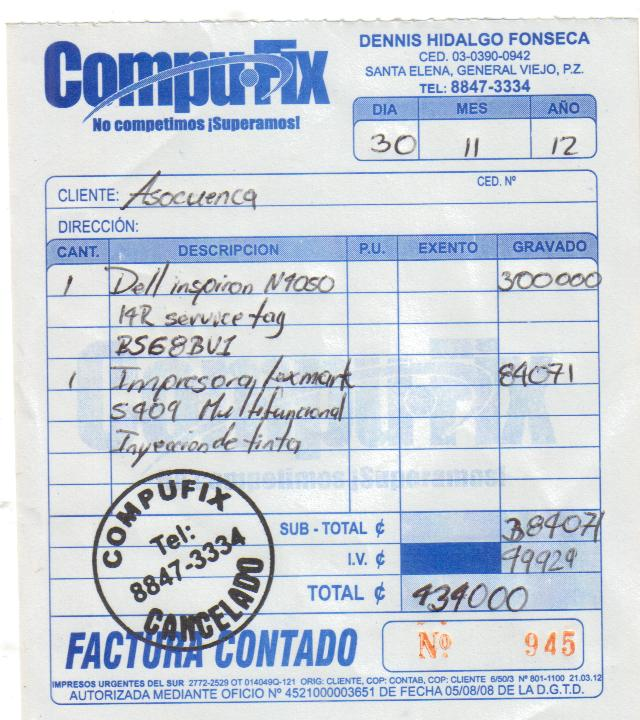 CompuFix
No competimos ¡Superamos!
DENNIS HIDALGO FONSECA
CED. 03-0390-0942
SANTA ELENA, GENERAL VIEJO, P.Z.
TEL: 8847-3334
DIA MES AÑO
30 11 12
CLIENTE: Asocuenca CED. Nº
DIRECCIÓN:
CANT. DESCRIPCION P.U. EXENTO GRAVADO
1 Dell inspiron N4050 300000
14R service tag
BS68BV1
1 Impresora Lexmark 84071
S409 Multifuncional
Inyeccion de tinta
SUB - TOTAL ¢ 384071
I.V. ¢ 49929
TOTAL ¢ 434000
COMPUFIX
Tel:
8847-3334
CANCELADO
FACTURA CONTADO Nº 945
IMPRESOS URGENTES DEL SUR 2772-2529 OT 014049Q-121 ORIG: CLIENTE, COP: CONTAB, COP: CLIENTE 6/50/3 Nº 801-1100 21.03.12
AUTORIZADA MEDIANTE OFICIO Nº 4521000003651 DE FECHA 05/08/08 DE LA D.G.T.D.